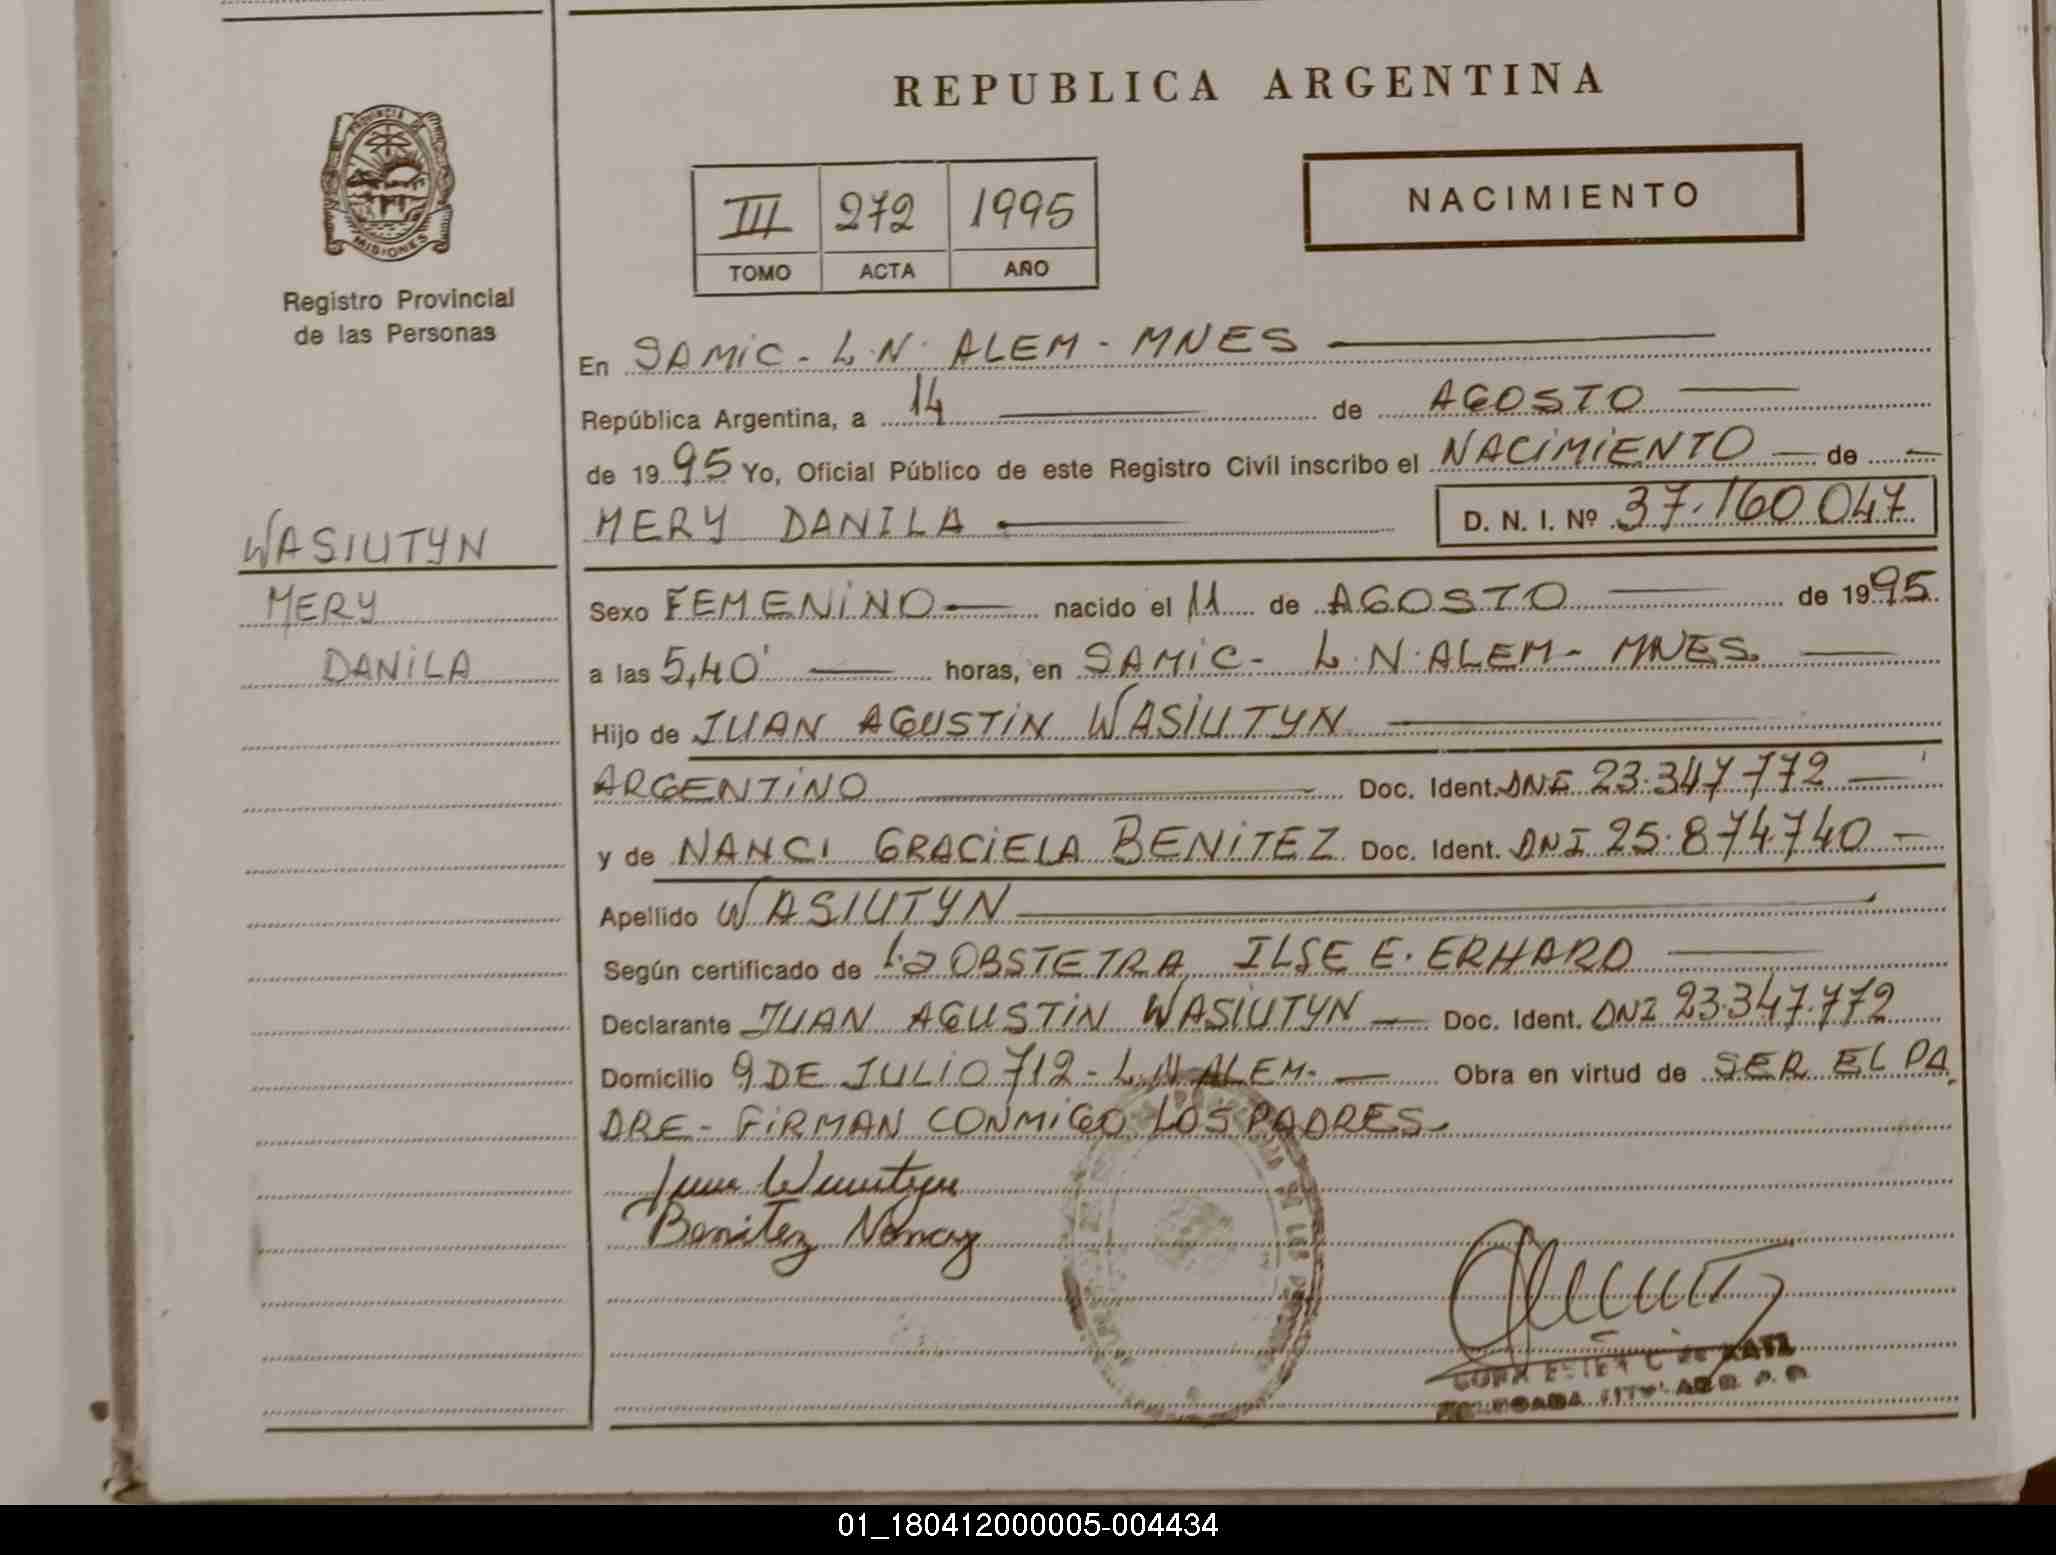 REPUBLICA ARGENTINA
PROVINCIA DE
MISIONES
Registro Provincial
de las Personas
III 272 1995
TOMO ACTA AÑO
NACIMIENTO
En SAMIC - L.N. ALEM - MNES
República Argentina, a 14 de AGOSTO
de 1995 Yo, Oficial Público de este Registro Civil inscribo el NACIMIENTO de
MERY DANILA D. N. I. Nº 37.160.047
WASIUTYN
MERY
DANILA
Sexo FEMENINO nacido el 11 de AGOSTO de 1995
a las 5,40' horas, en SAMIC - L.N. ALEM - MNES
Hijo de JUAN AGUSTIN WASIUTYN
ARGENTINO Doc. Ident. DNI 23.347.772
y de NANCI GRACIELA BENITEZ Doc. Ident. DNI 25.874.740
Apellido WASIUTYN
Según certificado de La OBSTETRA ILSE E. ERHARD
Declarante JUAN AGUSTIN WASIUTYN Doc. Ident. DNI 23.347.772
Domicilio 9 DE JULIO 712 - L.N. ALEM - Obra en virtud de SER EL PA
DRE - FIRMAN CONMIGO LOS PADRES
Juan Wasiutyn
Benitez Nancy
ESTER C. de
TITULAR
01_180412000005-004434